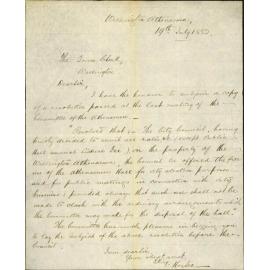 Wellington Athenaeum,
19th July 1880
The Town Clerk,
Wellington
Dear Sir,
I have the honor to subjoin a copy
of a resolution passed at the last meeting of the
Committee of the Athenaeum.
"Resolved that as the City Council, having
decided to remit all rates (except
) on the property of the
Wellington Athenaeum, the Council be offered the free
use of the Athenaeum Hall for city election purposes
and for public meetings in connection with city
business; provided always that such use shall not be
made to clash with the ordinary arrangements which
the Committee may make for the disposal of the hall."
The Committee have pleasure in begging you
to lay the subject of the above resolution before the
Council.
I am dear Sir,
Your obedt servt